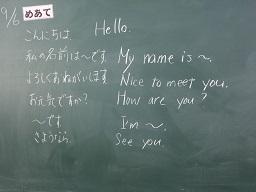 9/6 めあて
こんにちは。 Hello.
私の名前は〜です。 My name is 〜.
よろしくおねがいします。 Nice to meet you.
お元気ですか? How are you?
〜です。 I'm 〜.
さようなら。 See you.